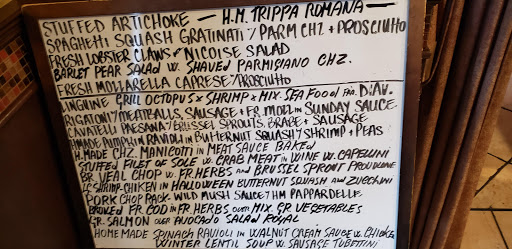 STUFFED ARTICHOKE — H.M. TRIPPA ROMANA —
SPAGHETTI SQUASH GRATINATI / PARM CHZ. + PROSCIUTTO
FRESH LOBSTER CLAWS / NICOISE SALAD
BARLET PEAR SALAD W. SHAVED PARMIGIANO CHZ.
FRESH MOZZARELLA CAPRESE / PROSCIUTTO
LINGUINE GRILL OCTOPUS + SHRIMP + MIX SEA FOOD FRA DIAV.
RIGATONI / MEATBALLS, SAUSAGE + FR. MOZZ. IN SUNDAY SAUCE.
CAVATELLI PAESANA / BRUSSEL SPROUTS, BRABE + SAUSAGE
H.MADE PUMPKIN RAVIOLI IN BUTTERNUT SQUASH / SHRIMP + PEAS
H.MADE CHZ. MANICOTTI IN MEAT SAUCE BAKED
STUFFED FILET OF SOLE W. CRAB MEAT IN WINE W. CAPELLINI
GR. VEAL CHOP W. FR. HERBS AND BRUSSEL SPROUT PROVOLONE
SHRIMP-CHICKEN IN HALLOWEEN BUTTERNUT SQUASH AND ZUCCHINI
PORK CHOP PACK WILD MUSH SAUCE / HM PAPPARDELLE
BROILED FR. COD IN FR. HERBS OVER MIX GR VEGETABLES
GR. SALMON OVER AVOCADO SALAD ROYAL
HOME MADE SPINACH RAVIOLI IN WALNUT CREAM SAUCE W. CHICKEN
WINTER LENTIL SOUP W. SAUSAGE TUBETTINI